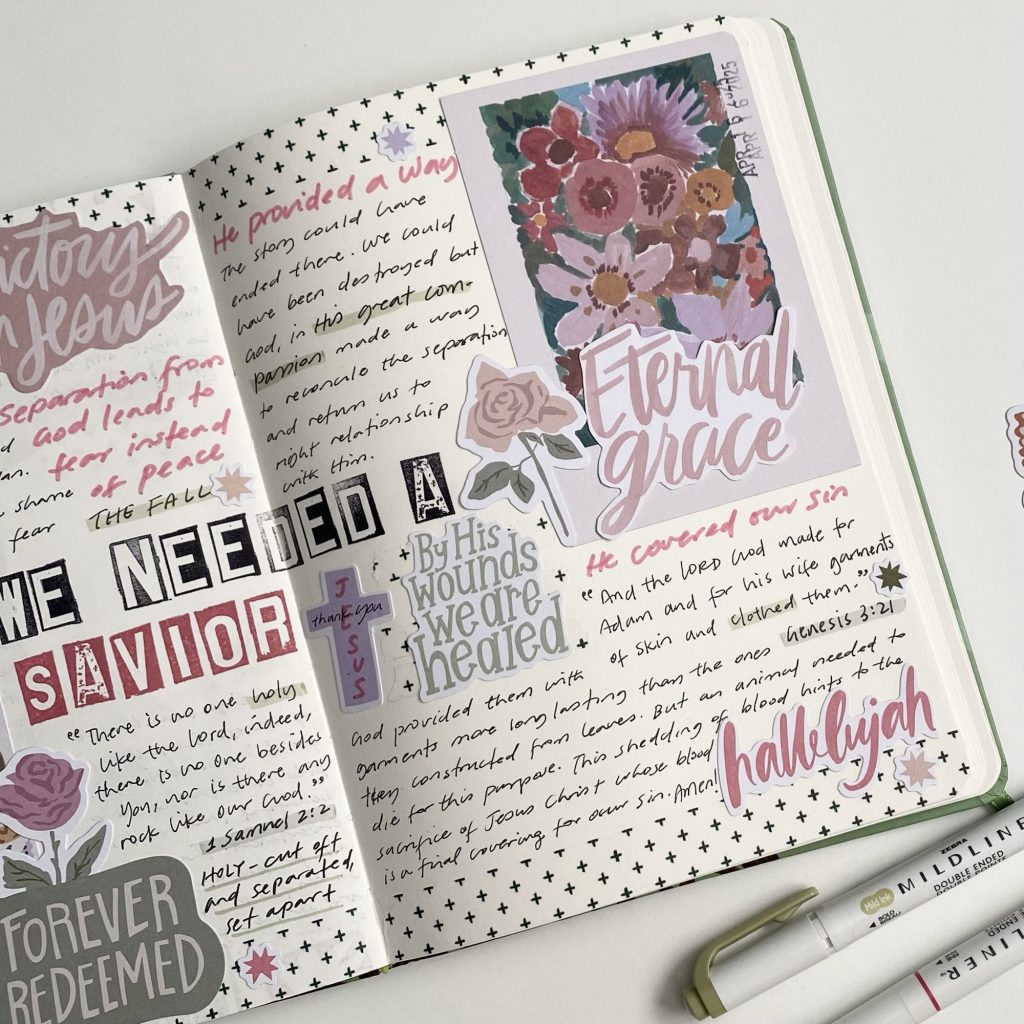 ictory
Jesus
separation from
God leads to
fear instead
of peace
shame
fear
THE FALL
WE NEEDED A
SAVIOR
"There is no one holy
like the Lord, indeed,
there is no one besides
you, nor is there any
rock like our God."
1 Samuel 2:2
HOLY - cut off
and separated,
set apart
FOREVER
REDEEMED
He provided a way
The story could have
ended there. We could
have been destroyed but
God, in His great com-
passion made a way
to reconcile the separation
and return us to
right relationship
with Him.
APR 16 2025
APR 16 2025
Eternal
grace
JESUS
thank you
By His
wounds
we are
healed
He covered our sin
"And the LORD God made for
Adam and for his wife garments
of skin and clothed them."
Genesis 3:21
God provided them with
garments more long lasting than the ones
they constructed from leaves. But an animal needed to
die for this purpose. This shedding of blood hints to the
sacrifice of Jesus Christ whose blood
is a final covering for our sin. Amen!
hallelujah
ZEBRA
MILDLINE
DOUBLE ENDED
DOUBLE POINTE
Mild Ink
BOLD
LINER